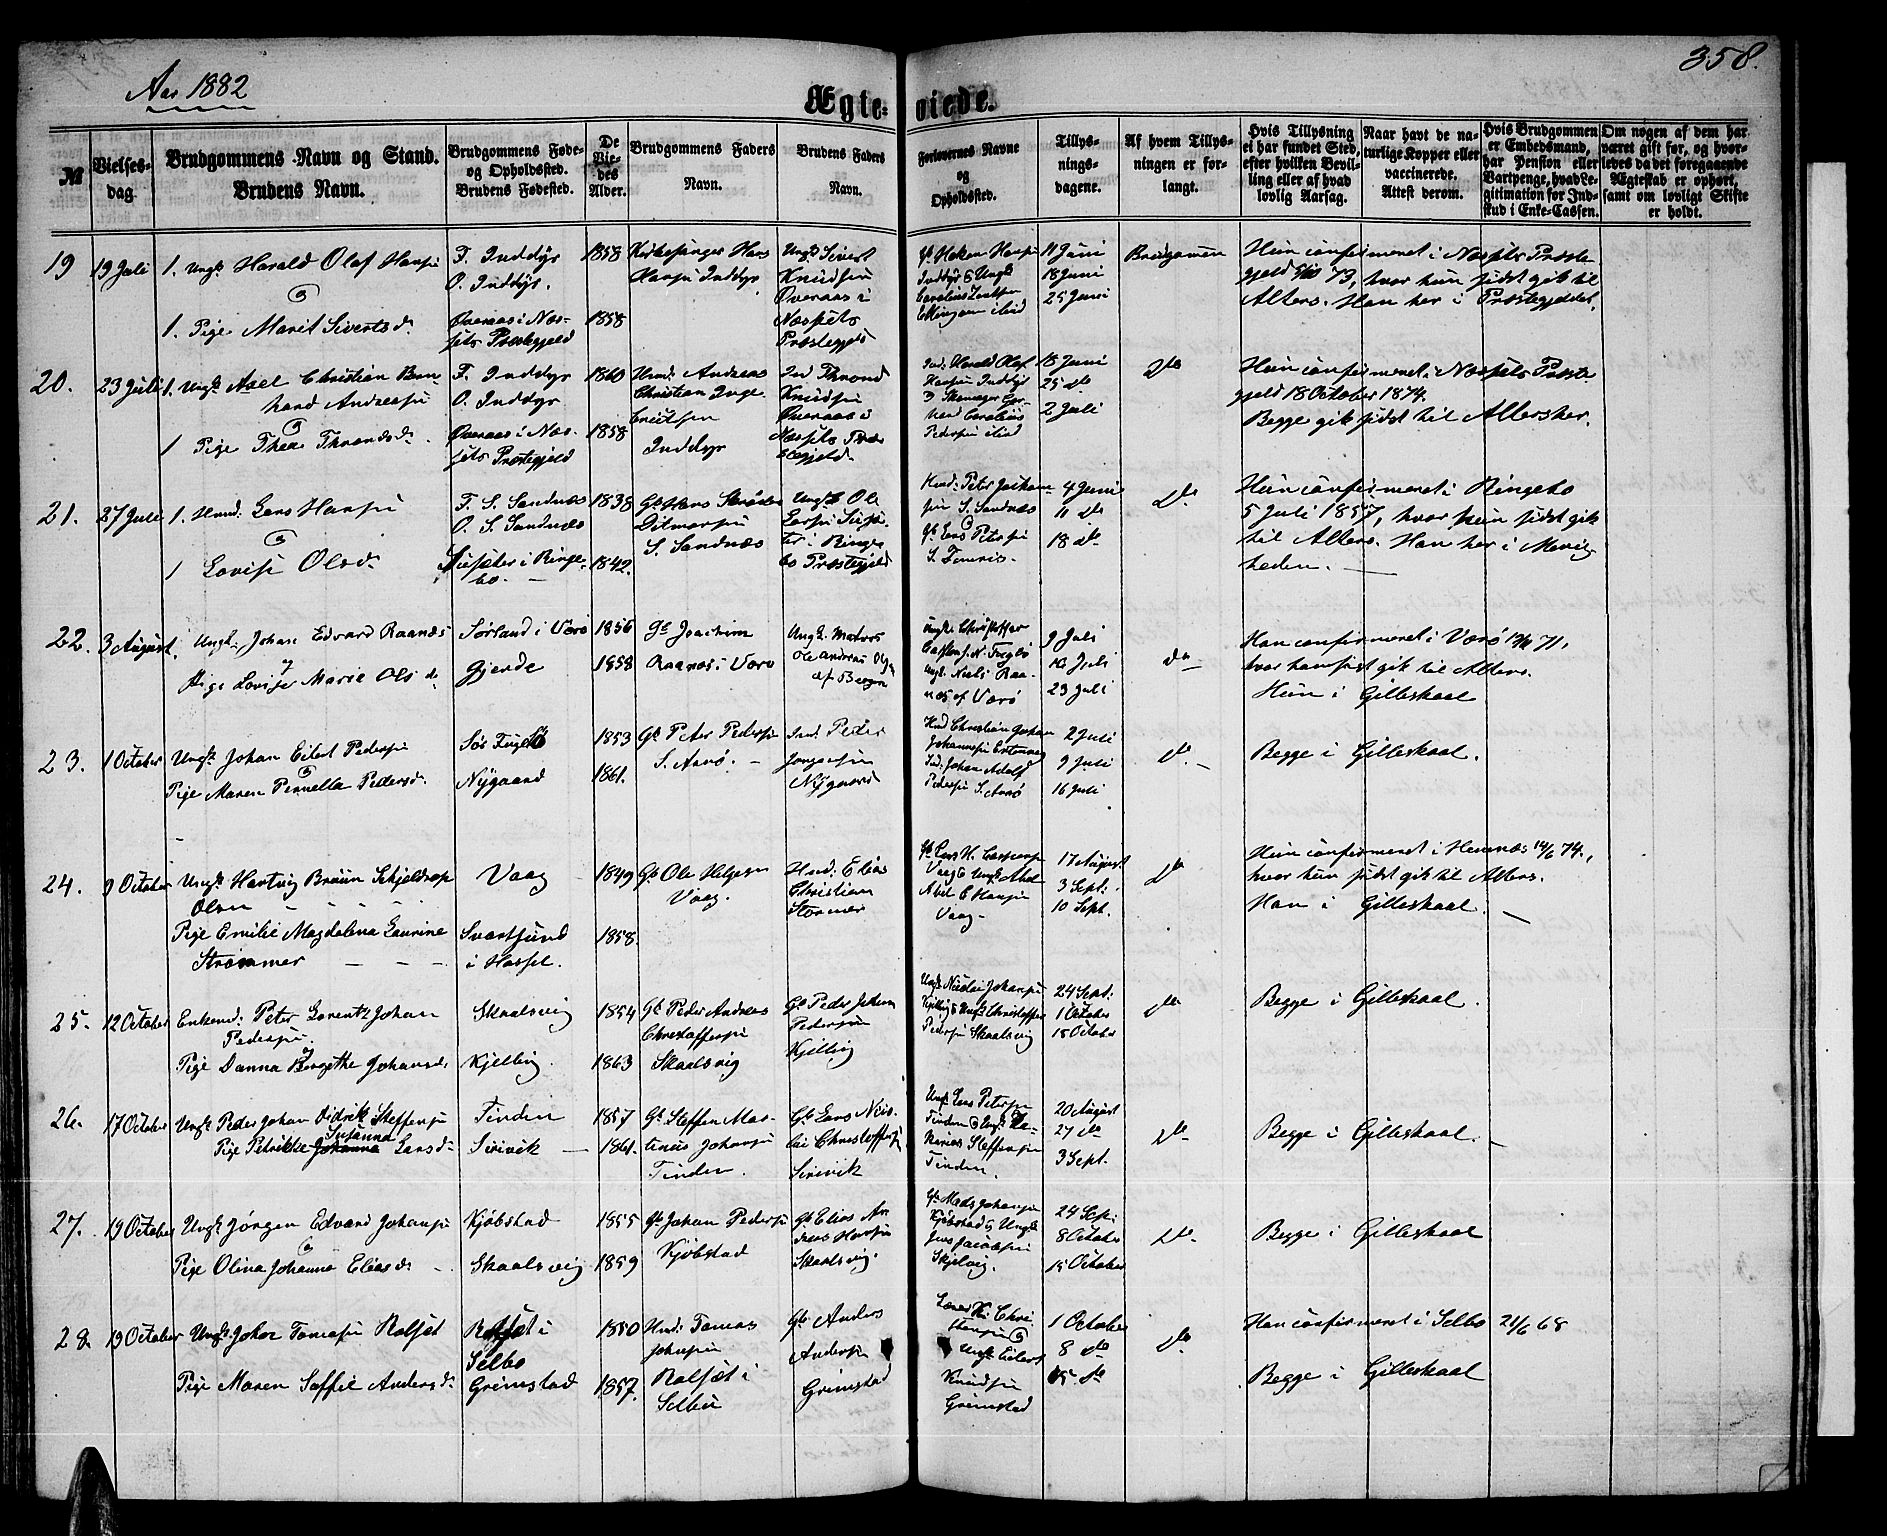 Aar 1882
358.
Ægte-viede.
№
Vielses-
dag.
Brudgommens Navn og Stand.
Brudens Navn.
Brudgommens Føde-
og Opholdssted.
Brudens Fødested.
De
Vie-
des
Alder.
Brudgommens Faders
Navn.
Brudens Faders
Navn.
Forlovernes Navne
og
Opholdssted.
Tillys-
nings-
dagene.
Af hvem Tillys-
ningen er for-
langt.
Hvis Tillysning
ei har fundet Sted,
efter hvilken Bevil-
ling eller af hvad
lovlig Aarsag.
Naar havt de na-
turlige Kopper eller
vaccinerede.
Attest derom.
Hvis Brudgommen
er Embedsmand,
har Pension eller
Vartpenge, hvad Le-
gitimation for Ind-
skud i Enke-Cassen.
Om nogen af dem har
været gift før, og hvor-
ledes da det foregaaende
Ægteskab er ophørt,
samt om lovligt Skifte
er holdt.
19
19 Juli
1. Ungk. Harald Olaf Hansen
&
1. Pige Marit Sivertsd.
F. Inddyr
O. Inddyr.
Øveraas i Næs-
sets Præstegjeld
1858
1858
Kirkesanger Hans
Hansen Inddyr
Ungk. Sivert
Knudsen
Øveraas i
Næssets
Præstegjeld
Gb. Haken Hansen
Inddyr & Ungk.
11 Juni
18 Juni
25 Juni
Brudgommen
Hun confirmeret i Næssets Præste-
gjeld 73, hvor hun sidst gik til
Alters. Han her i Præstegjeldet.
20.
23 Juli
1. Ungk. Axel Christian Bern-
hard Andreasen
&
1 Pige Thea Thrandsd.
F. Inddyr
O. Inddyr
Øveraas i Næs-
sets Præstegjeld
1860
1858
Hmd. Andreas
Christian Inge-
britsen
Inddyr
Ind. Thrond
Knudsen
Øveraas i
Næssets Præs-
tegjeld.
Ind. Harald Olaf
Hansen Inddyr
Pedersen ibid
18 Juni
25 do
2 Juli
do
Hun confirmeret i Næssets Præste-
gjeld 18 October 1874.
Begge gik sidst til Alters her.
21.
27 Juli
1. Hmd. Lars Hansen
&
1 Lovise Olsd.
F. S. Sandnæs
O. S. Sandnæs
i Ringe-
bo.
1838
1842.
Gb. Hans
Ditmarsen
S. Sandnæs
Ungk. Ole
Larsen
i Ringe-
bo Præstegjeld
Hmd. Peter Joakim-
sen S. Sandnæs
&
Gb. Lars Petersen
4 Juni
11 do
18 do
do.
Hun confirmeret i Ringebo
5 Juli 1857, hvor hun sidst gik
til Alters. Han her i Menig-
heden.
22.
3 August.
Ungk. Johan Edvard Raanæs
&
Pige Lovise Marie Olsd.
Sørland i Værø
Gjerde
1856
1858
Gb. Joachim
Raanæs i Værø
Ungk. Matros
Ole Andreas Olsen
af Bergen
Ungk. Christoffer
Ungk. Niels Raa-
næs af Værø
9 Juli
16 Juli
23 Juli
do
Han confirmeret i Værø 71,
hvor han sidst gik til Alters.
Hun i Gilleskaal
23.
1 October
Ungk. Johan Eilert Pedersen
&
Pige Maren Pernella Pedersd.
Sør Fuglø
Nygaard
1853
1861.
Gb. Peter Pedersen
S. Arnø.
Ind. Peder
Jørgensen
Nygaard
Hmd Christian Johan
Johannesen
Ind. Johan Adolf
Pedersen S. Arnø
2 Juli
9 Juli
16 Juli
do.
Begge i Gilleskaal.
24.
9 October
Ungk. Hartvig Bruun Schjeldrop
Olsen
Pige Emilie Magdalena Laurine
Strømmer
Vaag
Svartsund
i Hassel.
1849
1858.
Gb. Ole Helgesen
Vaag.
Hmd. Elias
Christian
Stormer
Gb. Lars H. Caspersen
Vaag & Ungk.
Abel C Hansen
Vaag.
17 August
3 Sept.
10 Sept.
do
Hun confirmeret i Hemnæs 14/6 74,
hvor hun sidst gik til Alters.
Han i Gilleskaal.
25.
12 October
Enkemd. Peter Lorentz Johan
Pedersen
&
Pige Danna Bergethe Johansd.
Skaalsvig
Kjelling
1854
1863
Gb. Peder Andreas
Christoffersen
Skaalsvig
Gb. Peder Johan
Pedersen
Kjelling
Ungk. Nicolai Johansen
Kjelling & Ungk. Christoffer
Pedersen Skaalsvig
24 Sept.
1 October
15 October
do
Begge i Gilleskaal.
26.
17 October
Ungk. Peder Johan Didrik Steffensen
Susanna
Pige Petrikke Johanna Larsd.
Tinden
Sørvik
1857
1861.
Gb. Steffen Mar-
tinus Johansen
Tinden.
Gb. Lars Nico-
lai Christoffersen
Sørvik
Ungk. Lars Petersen
Tinden & Ungk.
Steffensen
Tinden.
20 August
27 do
3 Sept.
do
Begge i Gilleskaal.
27.
19 October
Ungk. Jörgen Edvard Johansen
&
Pige Olina Johanna Eliasd.
Kjøbstad
Skaalsvig
1855
1859
Gb. Johan Pedersen
Kjøbstad
Gb. Elias An-
dreas Hansen
Skaalsvig.
Gb. Mads Johansen
Kjøbstad & Ungk.
Jens Jacobsen
Skjelvig.
24 Sept.
8 October
15 October
do
Begge i Gilleskaal
28.
19 October
Ungk. Johan Tomesen Rolset
Pige Maren Soffie Andersd.
Rolset i
Selbo
Grimstad
1850
1857.
Hmd. Tomas
Johnsen
Rolset i
Selbu
Gb. Anders
Andersen
Grimstad
Lærer K. Chri-
stensen &
Ungk. Eilert
Knudsen
Grimstad
1 October
8 do
15 do
do
Han confirmeret i Selbo 21/6 68
Begge i Gilleskaal